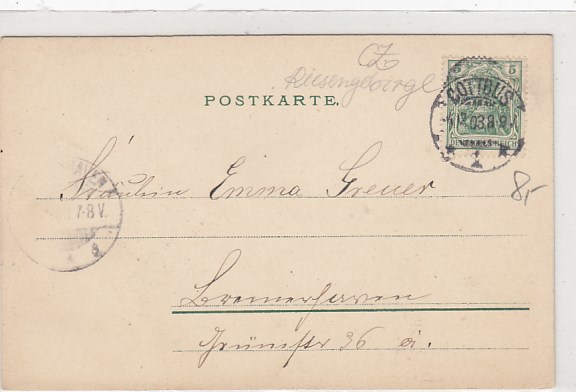 CZ
Riesengebirge
POSTKARTE.
5 5
COTTBUS
03 8-9
DEUTSCHES REICH
1
7-8 V.
Fräulein Emma Greuer
8,-
Bremerhaven
Grünstr 36